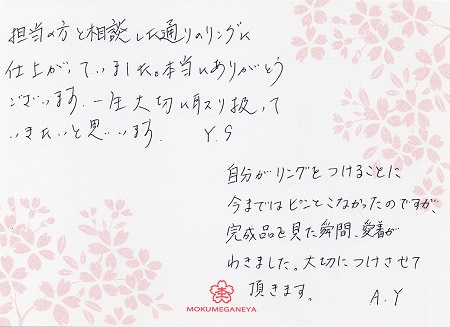 担当の方と相談した通りのリングに
仕上がっていました。本当にありがとう
ございます。一生大切に取り扱って
いきたいと思います。 Y.S
自分がリングをつけることに
今まではピンとこなかったのですが、
完成品を見た瞬間、愛着が
わきました。大切につけさせて
頂きます。 A.Y
MOKUMEGANEYA